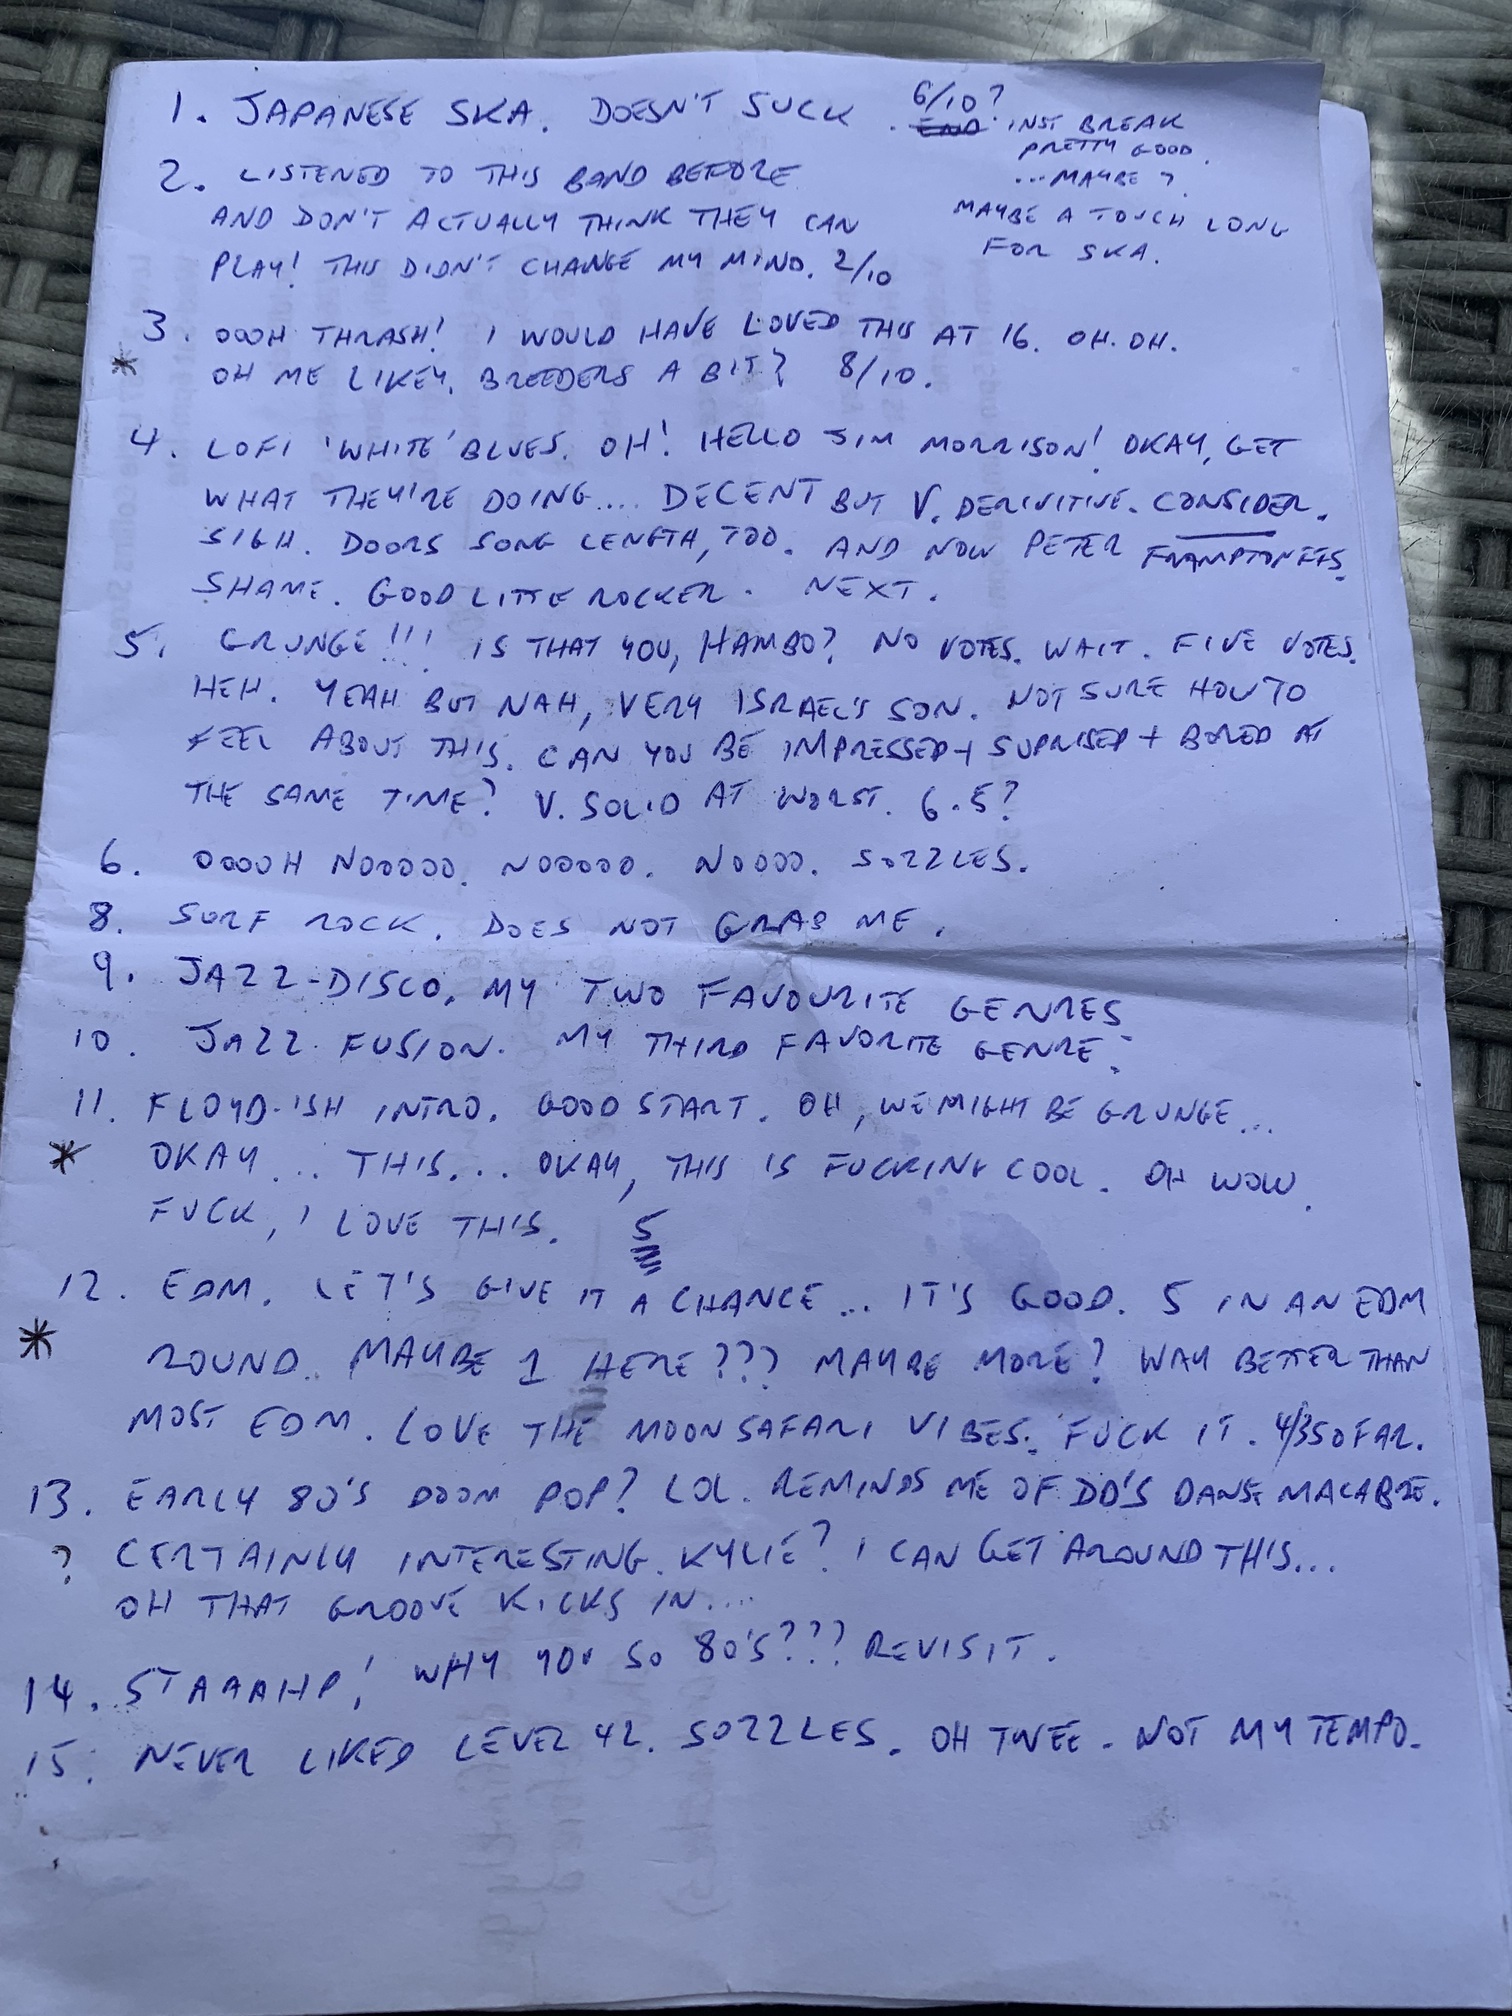 1. JAPANESE SKA. DOESN'T SUCK. 6/10?
END. INST BREAK
PRETTY GOOD.
...MAYBE?
MAYBE A TOUCH LONG
FOR SKA.
2. LISTENED TO THIS BAND BEFORE
AND DON'T ACTUALLY THINK THEY CAN
PLAY! THIS DIDN'T CHANGE MY MIND. 2/10
3. OOOH THRASH! I WOULD HAVE LOVED THIS AT 16. OH. OH.
* OH ME LIKEY. BREEDERS A BIT? 8/10.
4. LOFI 'WHITE' BLUES. OH! HELLO JIM MORRISON! OKAY, GET
WHAT THEY'RE DOING.... DECENT BUT V. DERIVITIVE. CONSIDER.
SIGH. DOORS SONG LENGTH, TOO. AND NOW PETER
SHAME. GOOD LITTE ROCKER. NEXT.
5. GRUNGE!!! IS THAT YOU, HAMBO? NO VOTES. WAIT. FIVE VOTES.
HEH. YEAH BUT NAH, VERY ISRAEL'S SON. NOT SURE HOW TO
FEEL ABOUT THIS. CAN YOU BE IMPRESSED + SUPRISED + BORED AT
THE SAME TIME? V. SOLID AT WORST. 6.5?
6. OOOOH NOOOOO. NOOOOO. NOOOO. SOZZLES.
8. SURF ROCK. DOES NOT GRAB ME.
9. JAZZ-DISCO. MY TWO FAVOURITE GENRES.
10. JAZZ FUSION. MY THIRD FAVORITE GENRE.
11. FLOYD-ISH INTRO. GOOD START. OH, WE MIGHT BE GRUNGE...
* OKAY... THIS... OKAY, THIS IS FUCKING COOL. OH WOW.
FUCK, I LOVE THIS. 5
12. EDM. LET'S GIVE IT A CHANCE... IT'S GOOD. 5 IN AN EDM
* ROUND. MAYBE 1 HERE??? MAYBE MORE? WAY BETTER THAN
MOST EDM. LOVE THE MOON SAFARI VIBES. FUCK IT. 4/3 SO FAR.
13. EARLY 80'S DOOM POP? LOL. REMINDS ME OF DD'S DANSE MACABRE.
? CERTAINLY INTERESTING. KYLIE? I CAN GET AROUND THIS...
OH THAT GROOVE KICKS IN....
14. STAAAHP! WHY YOU SO 80'S??? REVISIT.
15. NEVER LIKED LEVEL 42. SOZZLES. OH TWEE. NOT MY TEMPO.